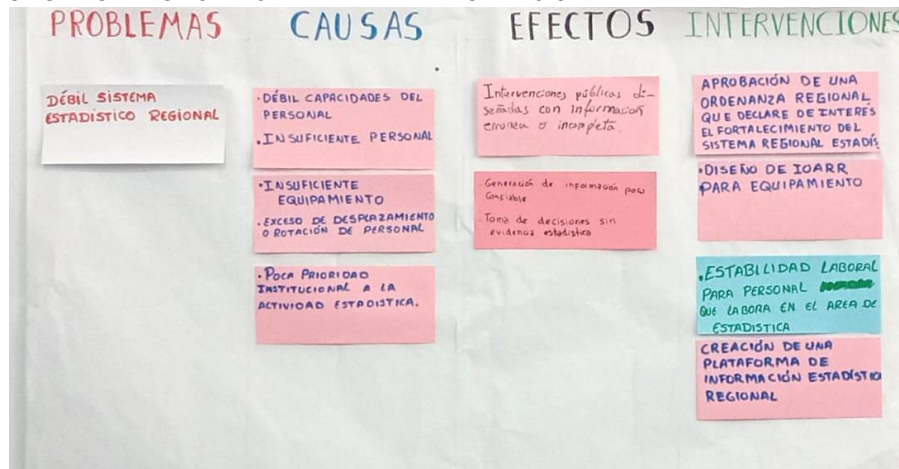 PROBLEMAS
DÉBIL SISTEMA
ESTADÍSTICO REGIONAL
CAUSAS
·DÉBIL CAPACIDADES DEL
PERSONAL
·INSUFICIENTE PERSONAL
·INSUFICIENTE
EQUIPAMIENTO
·EXCESO DE DESPLAZAMIENTO
O ROTACIÓN DE PERSONAL
·POCA PRIORIDAD
INSTITUCIONAL A LA
ACTIVIDAD ESTADISTICA.
EFECTOS
Intervenciones públicas di-
señadas con información
erronea o incompleta.
- Generación de información poco
Confiable
- Toma de decisiones sin
evidencia estadística
INTERVENCIONES
APROBACIÓN DE UNA
ORDENANZA REGIONAL
QUE DECLARE DE INTERÉS
EL FORTALECIMIENTO DEL
SISTEMA REGIONAL ESTADÍS
·DISEÑO DE IOARR
PARA EQUIPAMIENTO
·ESTABILIDAD LABORAL
PARA PERSONAL
QUE LABORA EN EL AREA DE
ESTADISTICA
CREACIÓN DE UNA
PLATAFORMA DE
INFORMACIÓN ESTADÍSTICA
REGIONAL